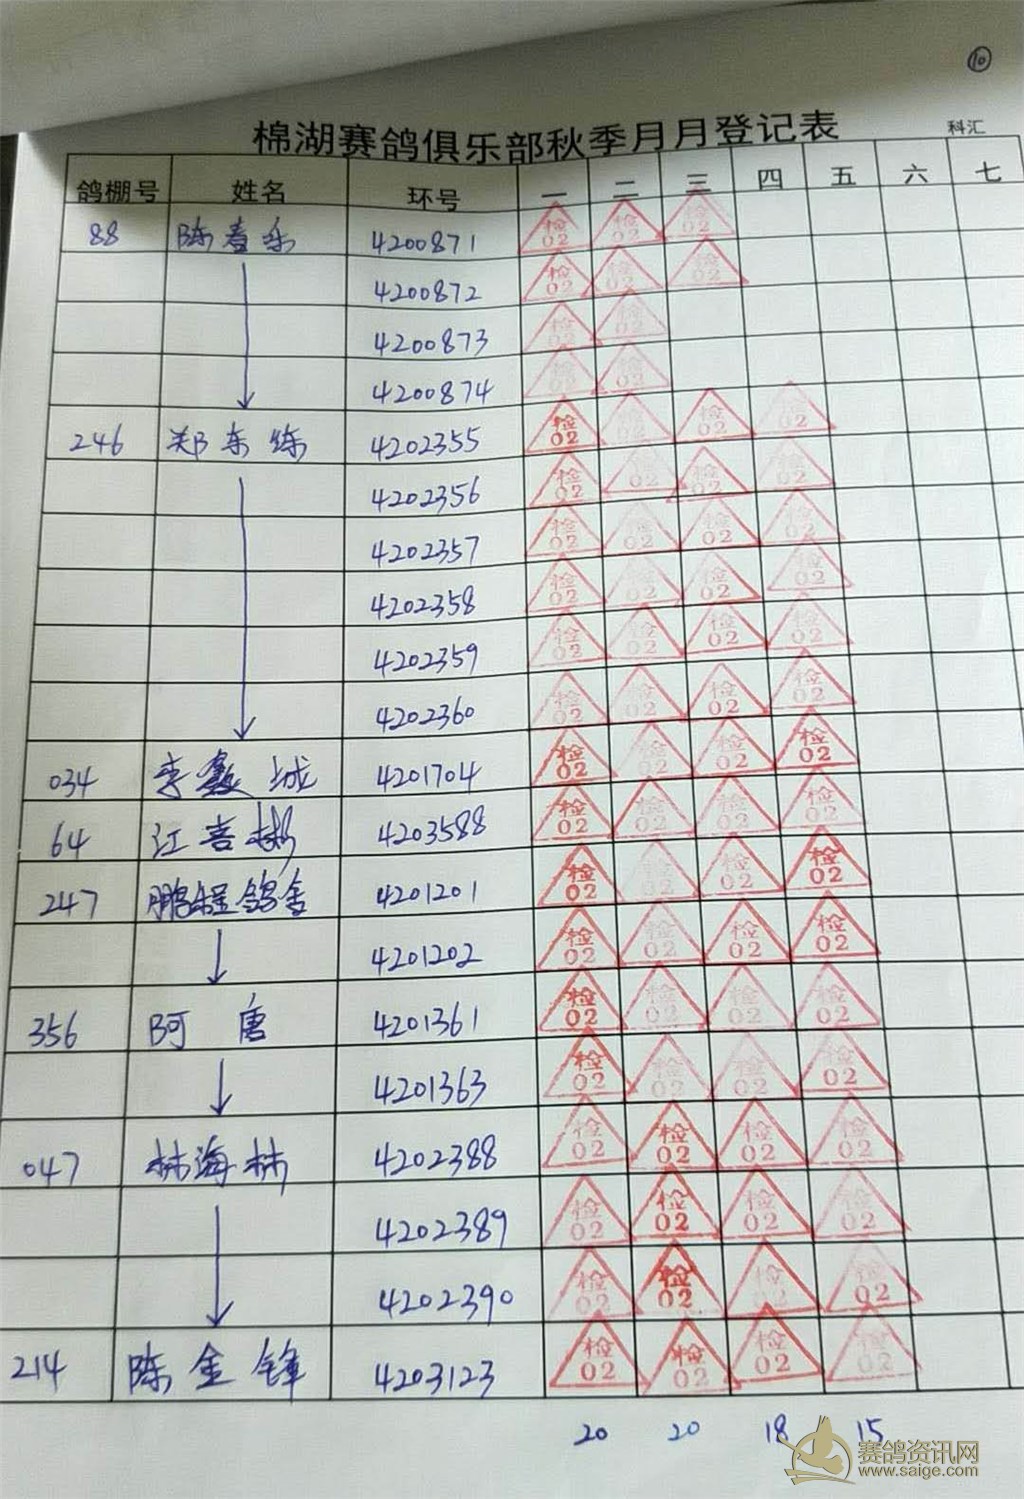 ⑩
棉湖赛鸽俱乐部秋季月月登记表 科汇
鸽棚号 姓名 环号 一 二 三 四 五 六 七
88 陈喜乐 4200871 检02 检02 检02
4200872 检02 检02 检02
4200873 检02 检02
4200874 检02 检02
246 郑东练 4202355 检02 检02 检02 检02
4202356 检02 检02 检02 检02
4202357 检02 检02 检02 检02
4202358 检02 检02 检02 检02
4202359 检02 检02 检02 检02
4202360 检02 检02 检02 检02
034 李 城 4201704 检02 检02 检02 检02
64 江喜彬 4203588 检02 检02 检02 检02
247 鹏程鸽舍 4201201 检02 检02 检02 检02
4201202 检02 检02 检02 检02
356 阿唐 4201361 检02 检02 检02 检02
4201363 检02 检02 检02 检02
047 林海林 4202388 检02 检02 检02 检02
4202389 检02 检02 检02 检02
4202390 检02 检02 检02 检02
214 陈金锋 4203123 检02 检02 检02 检02
20 20 18 15
赛鸽资讯网
www.saige.com